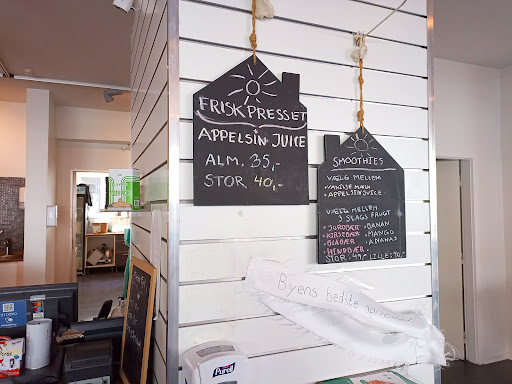 FRISKPRESSET
APPELSINJUICE
ALM. 35,-
STOR 40,-
SMOOTHIES
VÆLG MELLEM
• APPELSINJUICE
VÆLG MELLEM
3 SLAGS FRUGT
• JORDBÆR • BANAN
• KIRSEBÆR • MANGO
• BLÅBÆR • ANANAS
• HINDBÆR
STOR: 49,- LILLE: 40,-
Byens bedste
PURELL